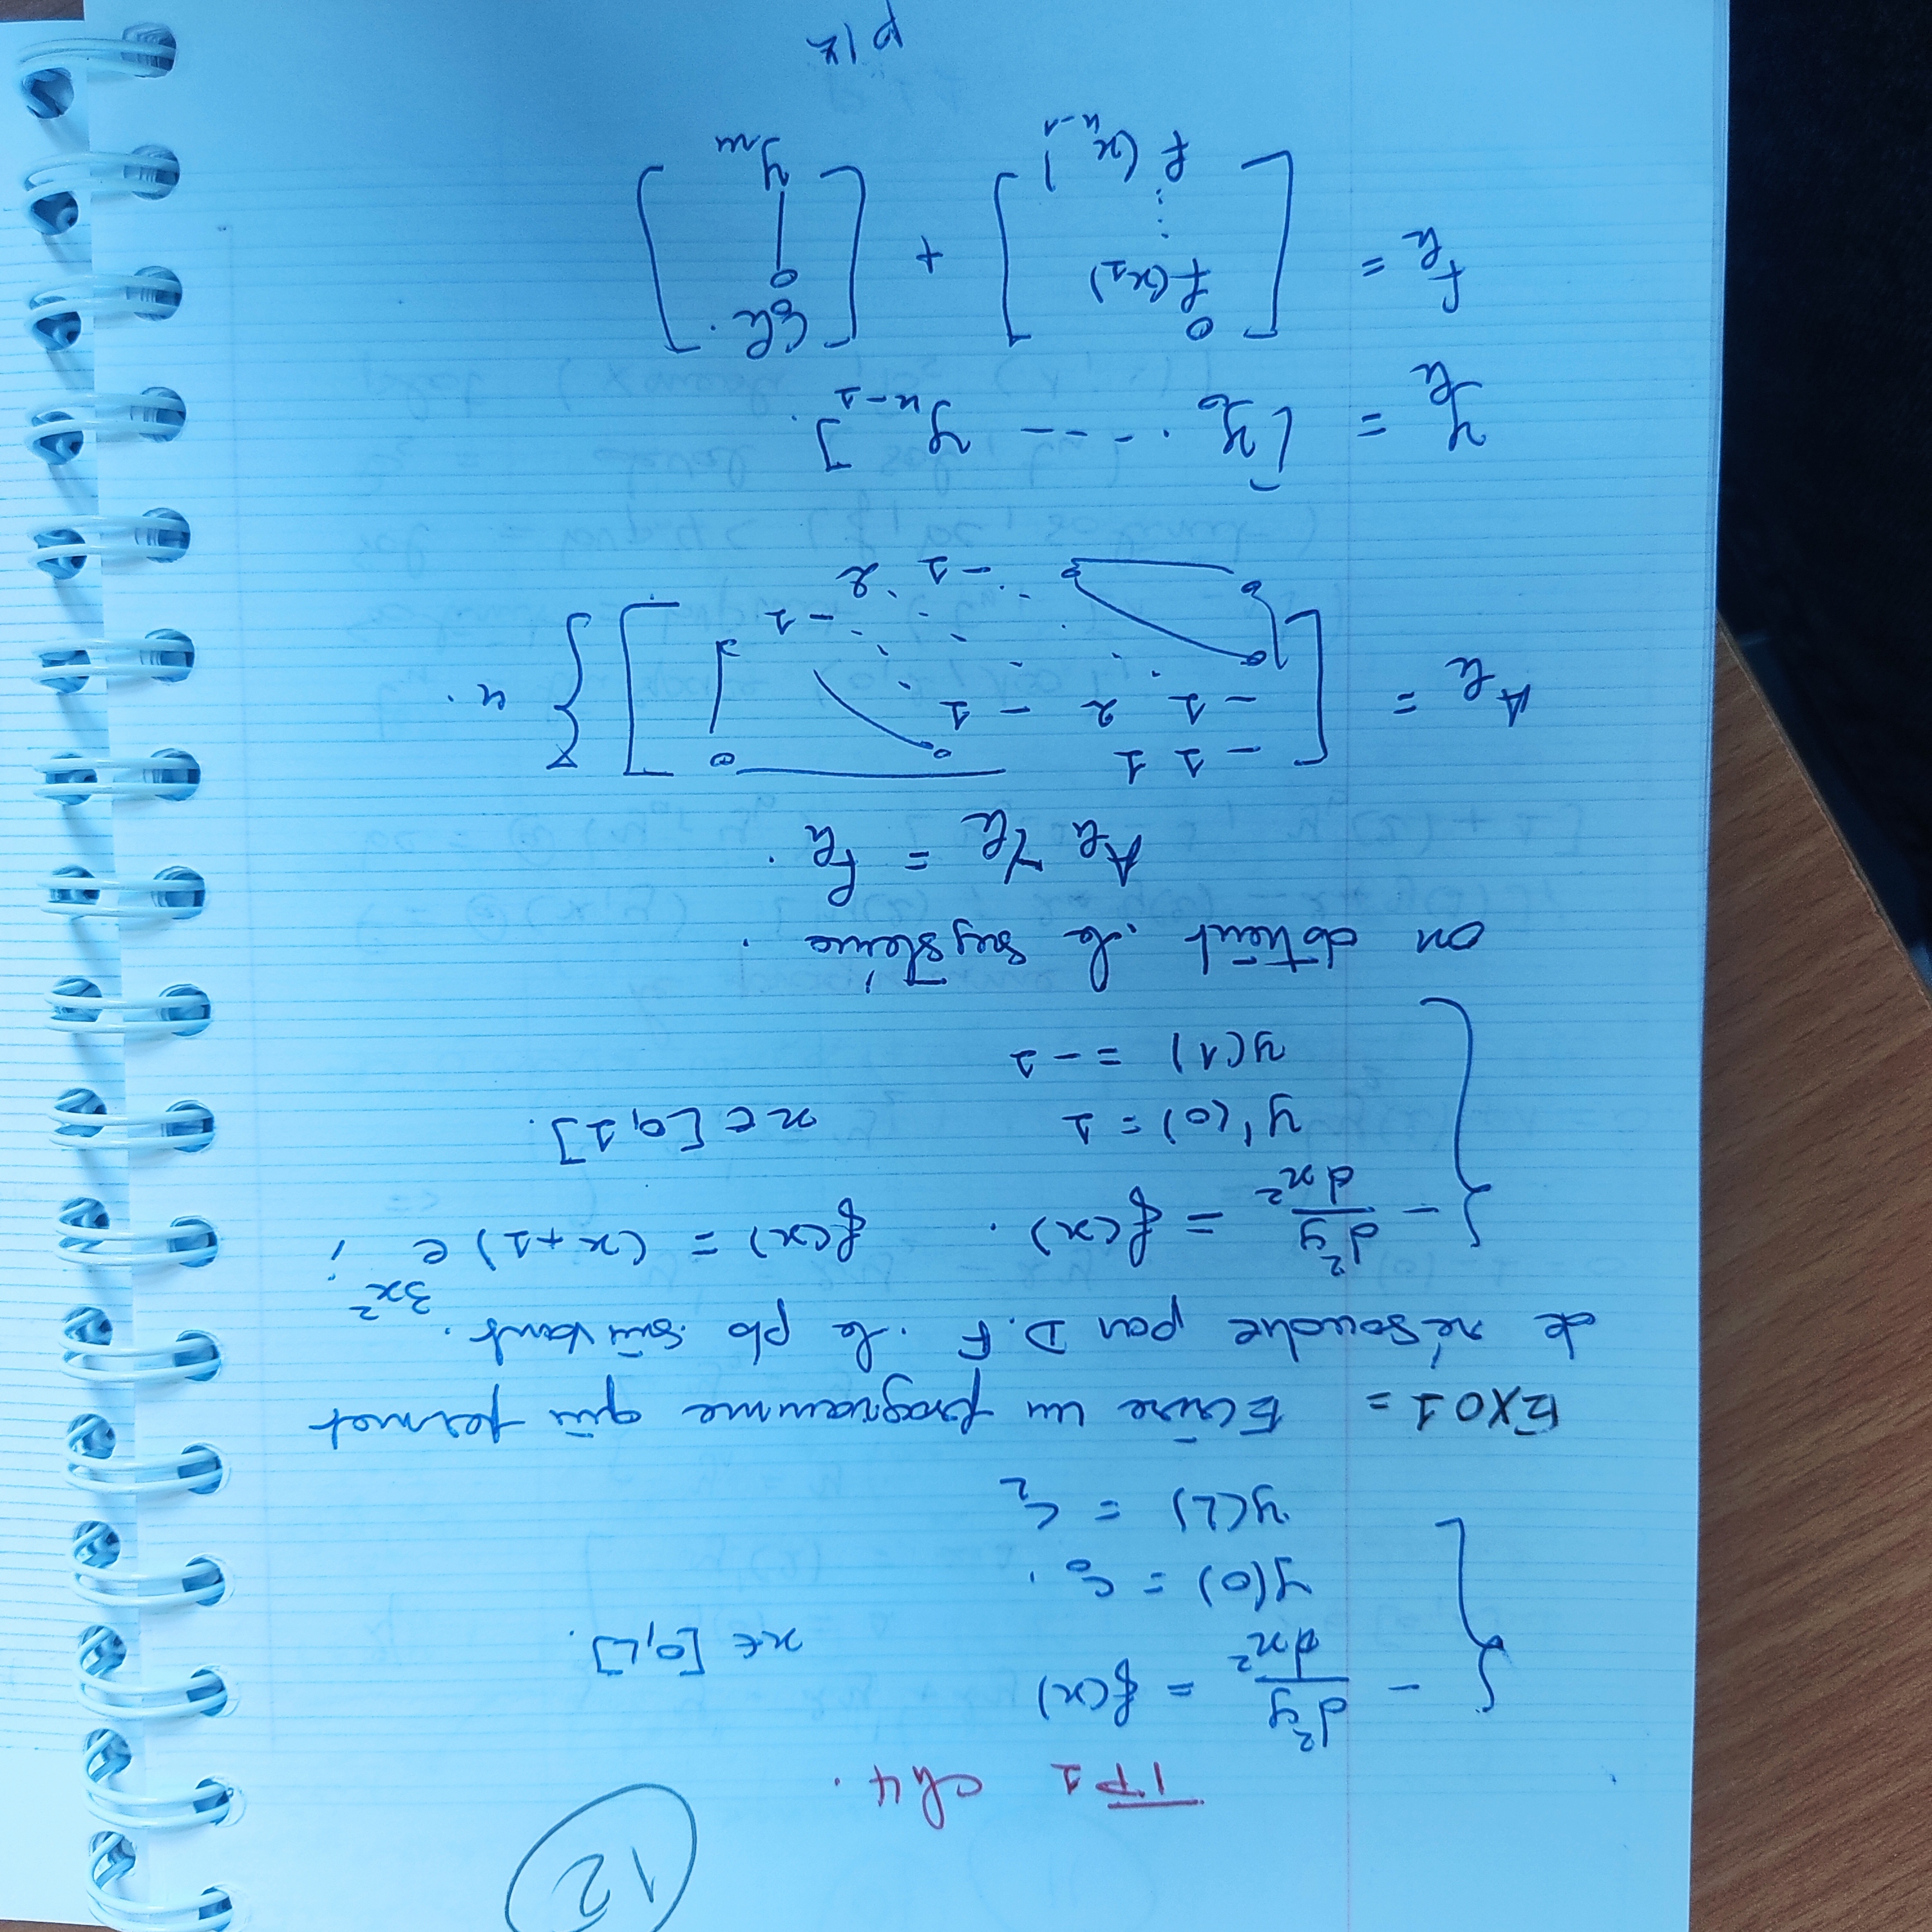 12
TP1 ch4.
- d²y/dx² = f(x) x ∈ [0,L].
y(0) = c₀.
y(L) = c_L
EXO1 = Ecrire un programme qui permet
de résoudre par D.F. le pb suivant.
- d²y/dx² = f(x). f(x) = (x+1) e^{3x²};
y'(0) = 1 x ∈ [0,1].
y(1) = -1
on obtient le système.
A_h Y_h = f_h.
A_h = [ -1 1 0 0
-1 2 -1
0 -1 0
0 0 -1 2 ] } n.
y_h = [y₀ .--- y_{n-1}].
f_h = [ 0 f(x₁) ⋮ f(x_{n-1}) ] + [ c₀h. 0 | y_n ]